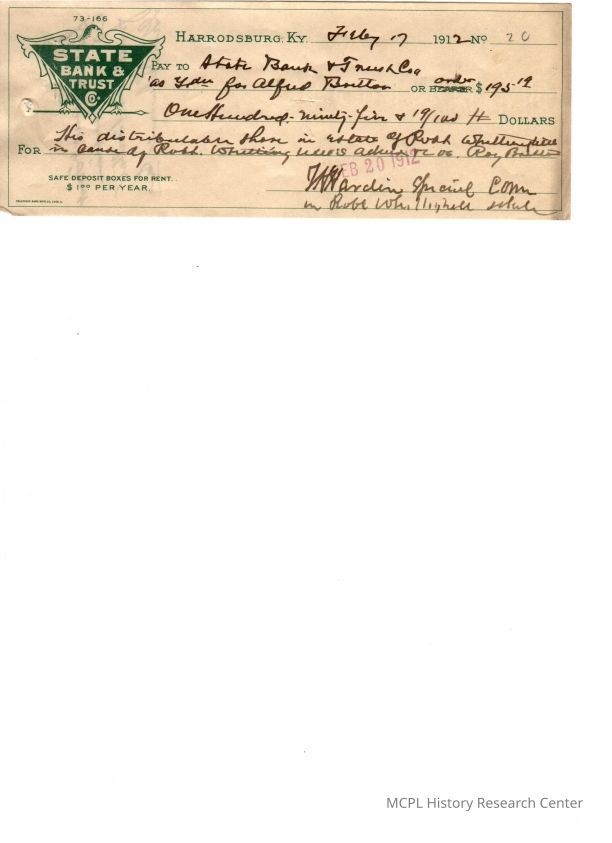 73-166
STATE
BANK &
TRUST
Co.
HARRODSBURG, KY. Feby 17 1912 No 20
PAY TO State Bank & Trust Co
as Gdn for Alfred Britton OR order BEARER $ 195 19
One Hundred - ninety-five & 19/100 DOLLARS
FOR His distributable share in Estate of Robt
in cause of Robt. Admr Roy Britton
FEB 20 1912
SAFE DEPOSIT BOXES FOR RENT.
$ 1.00 PER YEAR.
Hardin Special Com
in Robt
MCPL History Research Center